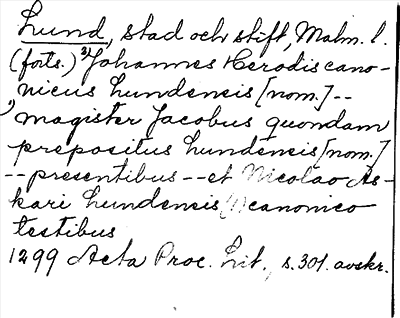 Lund, stad och stift, Malm. l.
(forts.) Johannes Herodis cano-
nicus Lundensis [nom.] --
, magister Jacobus quondam
prepositus Lundensis [nom.]
-- presentibus -- et Nicolao As-
kari Lundensis canonico
testibus
1299 Acta Proc. Lit., s. 301. avskr.